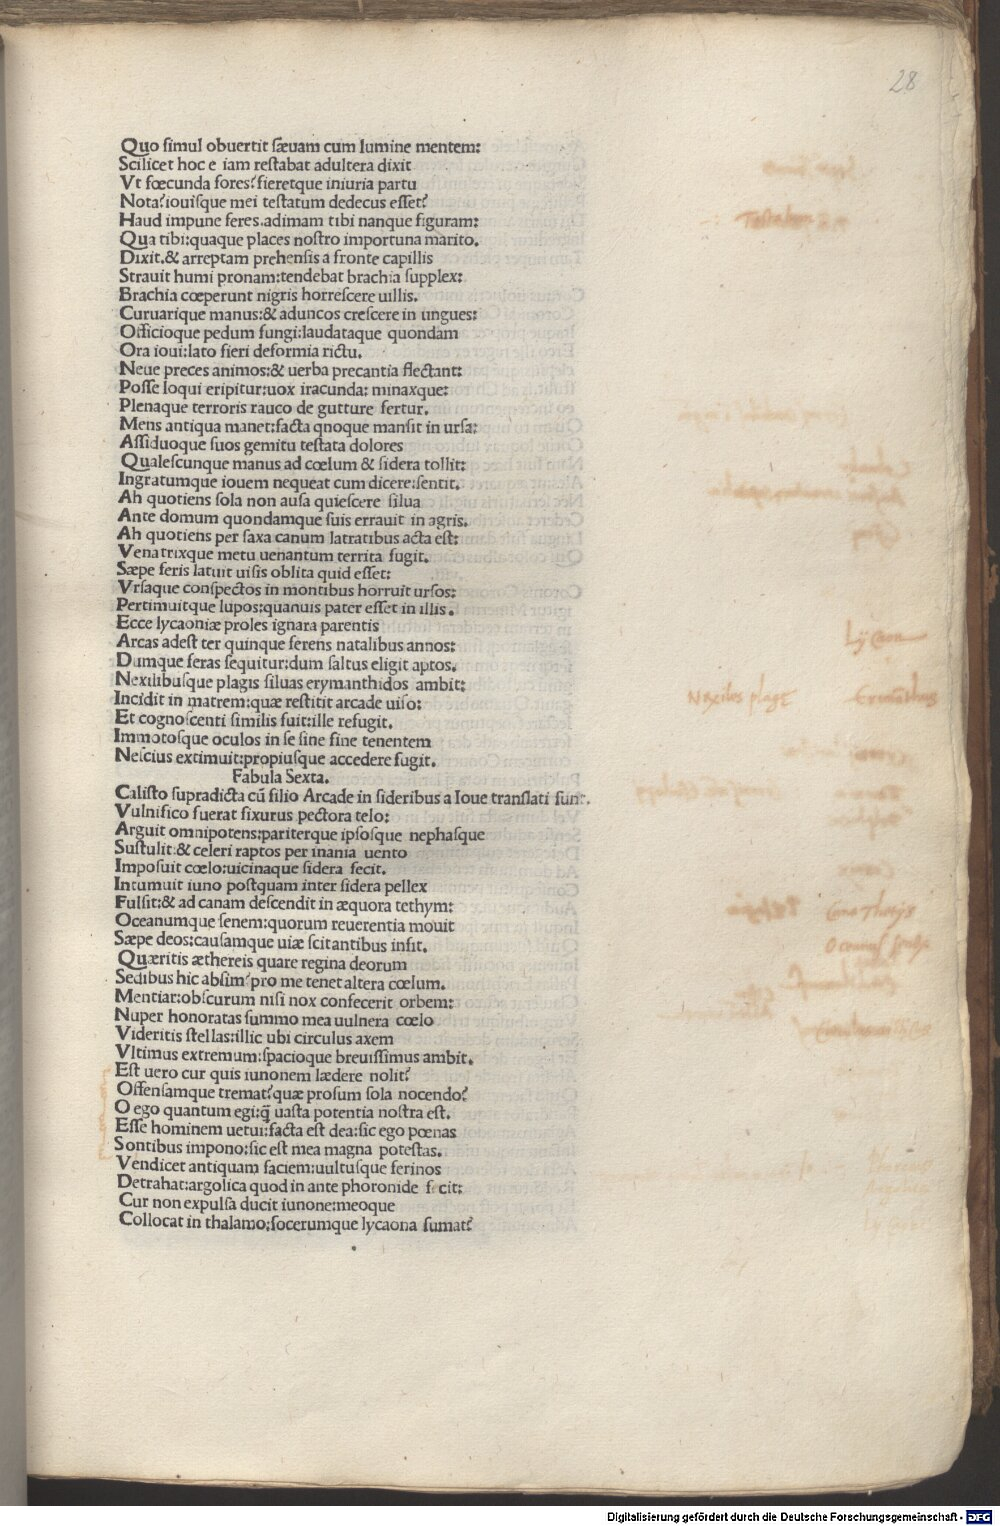 28
Quo simul obuertit sæuam cum lumine mentem:
Scilicet hoc e iam restabat adultera dixit
Vt fœcunda fores? fieretque iniuria partu
Nota? iouisque mei testatum dedecus esset?
Haud impune feres.adimam tibi nanque figuram:
Qua tibi:quaque places nostro importuna marito.
Dixit.& arreptam prehensis a fronte capillis
Strauit humi pronam:tendebat brachia supplex:
Brachia cœperunt nigris horrescere uillis.
Curuarique manus:& aduncos crescere in ungues:
Officioque pedum fungi:laudataque quondam
Ora ioui:lato fieri deformia rictu.
Neue preces animos:& uerba precantia flectant:
Posse loqui eripitur:uox iracunda: minaxque:
Plenaque terroris rauco de gutture fertur.
Mens antiqua manet:facta qnoque mansit in ursa:
Assiduoque suos gemitu testata dolores
Qualescunque manus ad cœlum & sidera tollit:
Ingratumque iouem nequeat cum dicere:sentit.
Ah quotiens sola non ausa quiescere silua
Ante domum quondamque suis errauit in agris.
Ah quotiens per saxa canum latratibus acta est:
Venatrixque metu uenantum territa fugit.
Sæpe feris latuit uisis oblita quid esset:
Vrsaque conspectos in montibus horruit ursos:
Pertimuitque lupos:quanuis pater esset in illis.
Ecce lycaoniæ proles ignara parentis
Arcas adest ter quinque ferens natalibus annos:
Dumque feras sequitur:dum saltus eligit aptos.
Nexilibusque plagis siluas erymanthidos ambit:
Incidit in matrem:quæ restitit arcade uiso:
Et cognoscenti similis fuit:ille refugit.
Immotosque oculos in se sine fine tenentem
Nescius extimuit:propiusque accedere fugit.
Fabula Sexta.
Calisto supradicta cū filio Arcade in sideribus a Ioue translati sunt.
Vulnifico fuerat fixurus pectora telo:
Arguit omnipotens:pariterque ipsosque nephasque
Sustulit:& celeri raptos per inania uento
Imposuit cœlo:uicinaque sidera fecit.
Intumuit iuno postquam inter sidera pellex
Fulsit:& ad canam descendit in æquora tethym:
Oceanumque senem:quorum reuerentia mouit
Sæpe deos:causamque uiæ scitantibus infit.
Quæritis æthereis quare regina deorum
Sedibus hic absim? pro me tenet altera cœlum.
Mentiar:obscurum nisi nox confecerit orbem:
Nuper honoratas summo mea uulnera cœlo
Videritis stellas:illic ubi circulus axem
Vltimus extremum:spacioque breuissimus ambit.
Est uero cur quis iunonem lædere nolit?
Offensamque tremat? quæ prosum sola nocendo?
O ego quantum egi:q̄ uasta potentia nostra est.
Esse hominem uetui:facta est dea:sic ego pœnas
Sontibus impono:sic est mea magna potestas.
Vendicet antiquam faciem:uultusque ferinos
Detrahat:argolica quod in ante phoronide fecit:
Cur non expulsa ducit iunone:meoque
Collocat in thalamo:socerumque lycaona sumat?
Lycaon
Nexiles plagę
Digitalisierung gefördert durch die Deutsche Forschungsgemeinschaft - DFG